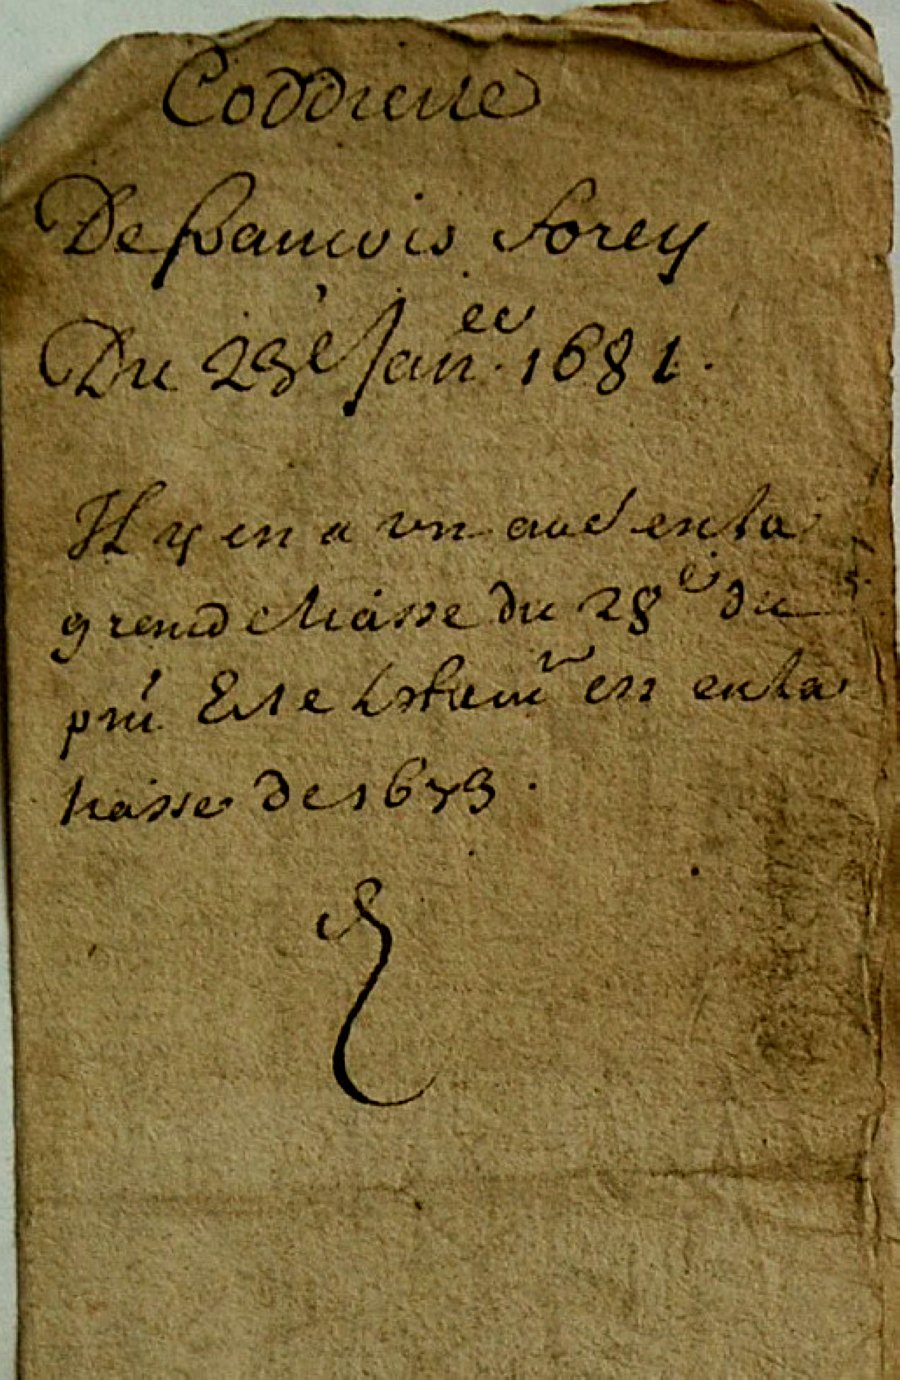 Coddicille
De francois Forey
Du 23e Janer. 1681.
Il y en a un aud en la
grend Liasse du 28e du
pnt Et le testamt en en la
liasse de 1673.